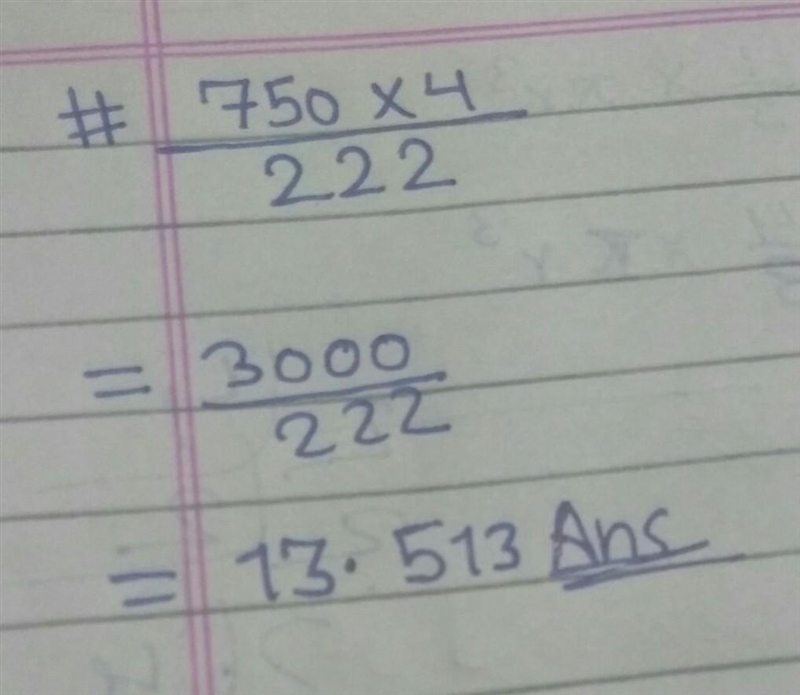 # 750 x 4
222
= 3000
222
= 13.513 Ans